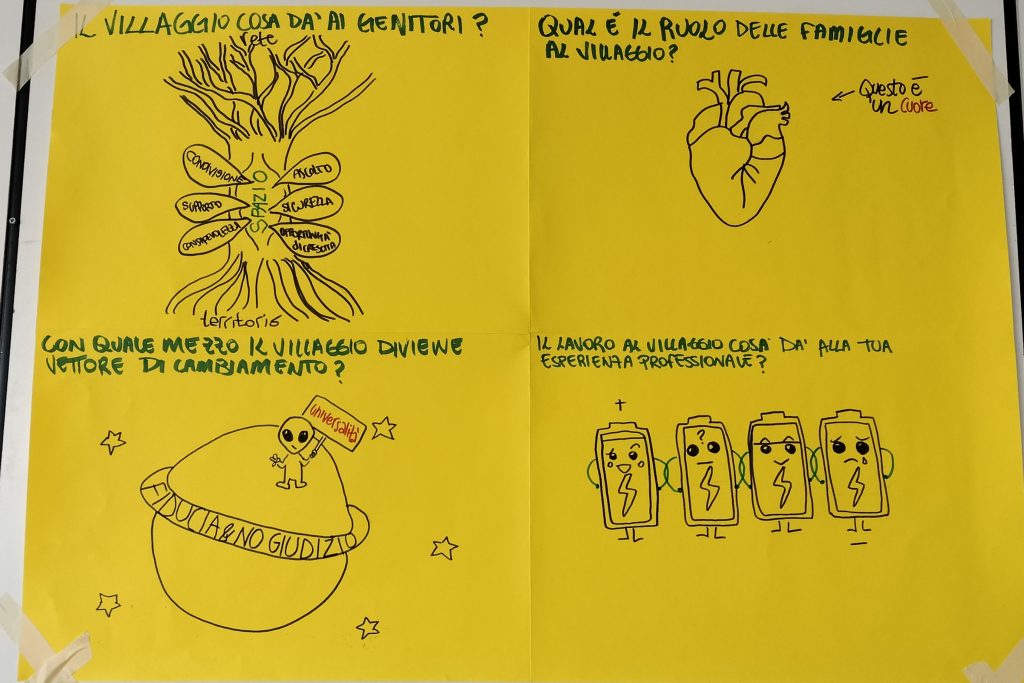 IL VILLAGGIO COSA DA' AI GENITORI?
rete
CONDIVISIONE
ASCOLTO
SPAZIO
SUPPORTO
SICUREZZA
CONSAPEVOLEZZA
OPPORTUNITA'
DI CRESCITA
territorio
QUAL É IL RUOLO DELLE FAMIGLIE
AL VILLAGGIO?
Questo è
un cuore
CON QUALE MEZZO IL VILLAGGIO DIVIENE
VETTORE DI CAMBIAMENTO?
universalità
FIDUCIA & NO GIUDIZIO
IL LAVORO AL VILLAGGIO COSA DA' ALLA TUA
ESPERIENZA PROFESSIONALE?
+
?
-